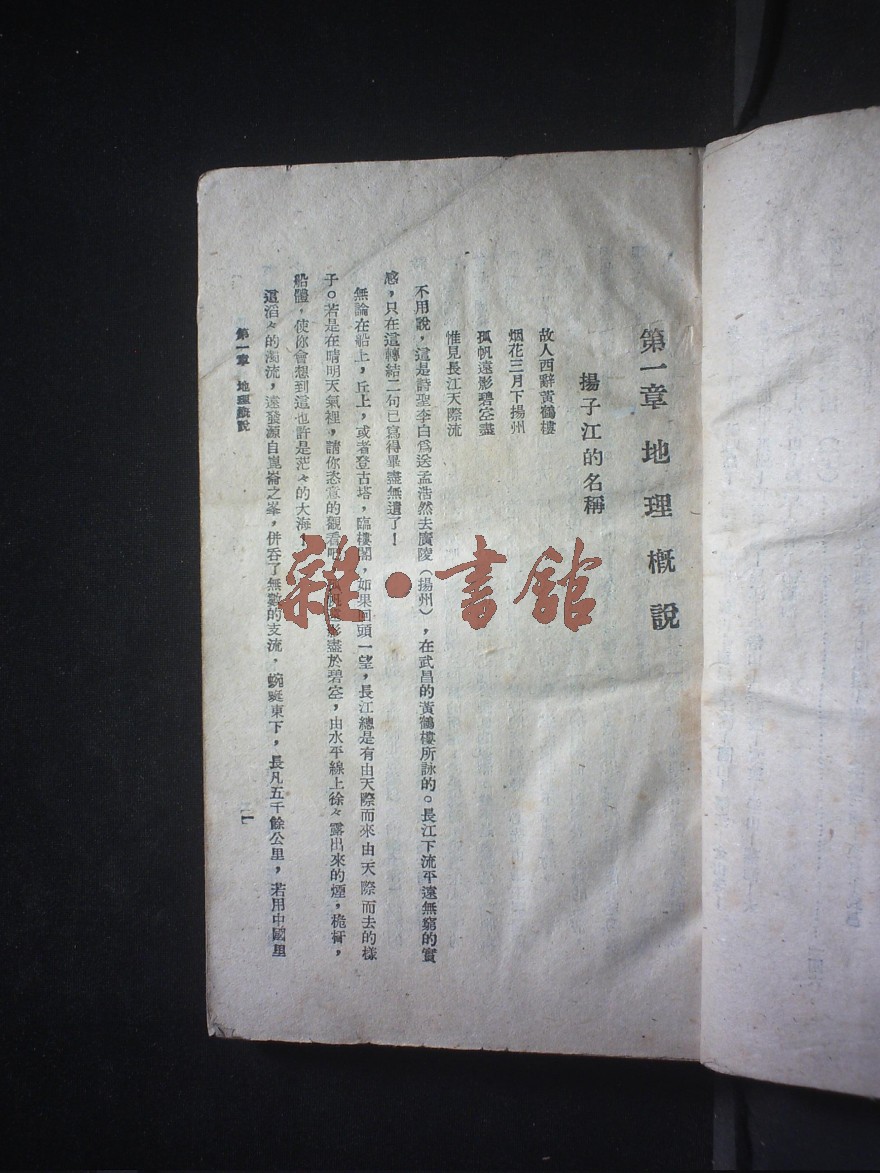 第一章 地理概說
揚子江的名稱
故人西辭黃鶴樓
烟花三月下揚州
孤帆遠影碧空盡
惟見長江天際流
不用說，這是詩聖李白為送孟浩然去廣陵（揚州），在武昌的黃鶴樓所詠的。長江下流平遠無窮的實
感，只在這轉結二句已寫得畢盡無遺了！
無論在船上，丘上，或者登古塔，臨樓閣，如果回頭一望，長江總是有由天際而來由天際而去的樣
子。若是在晴明天氣裡，請你恣意的觀看吧，帆遠影盡於碧空，由水平線上徐々露出來的煙，桅杆，
船體，使你會想到這也許是茫々的大海！
這滔々的濁流，遠發源自崑崙之峯，併吞了無數的支流，蜿蜒東下，長凡五千餘公里，若用中國里
第一章 地理概說
一
雜·書館